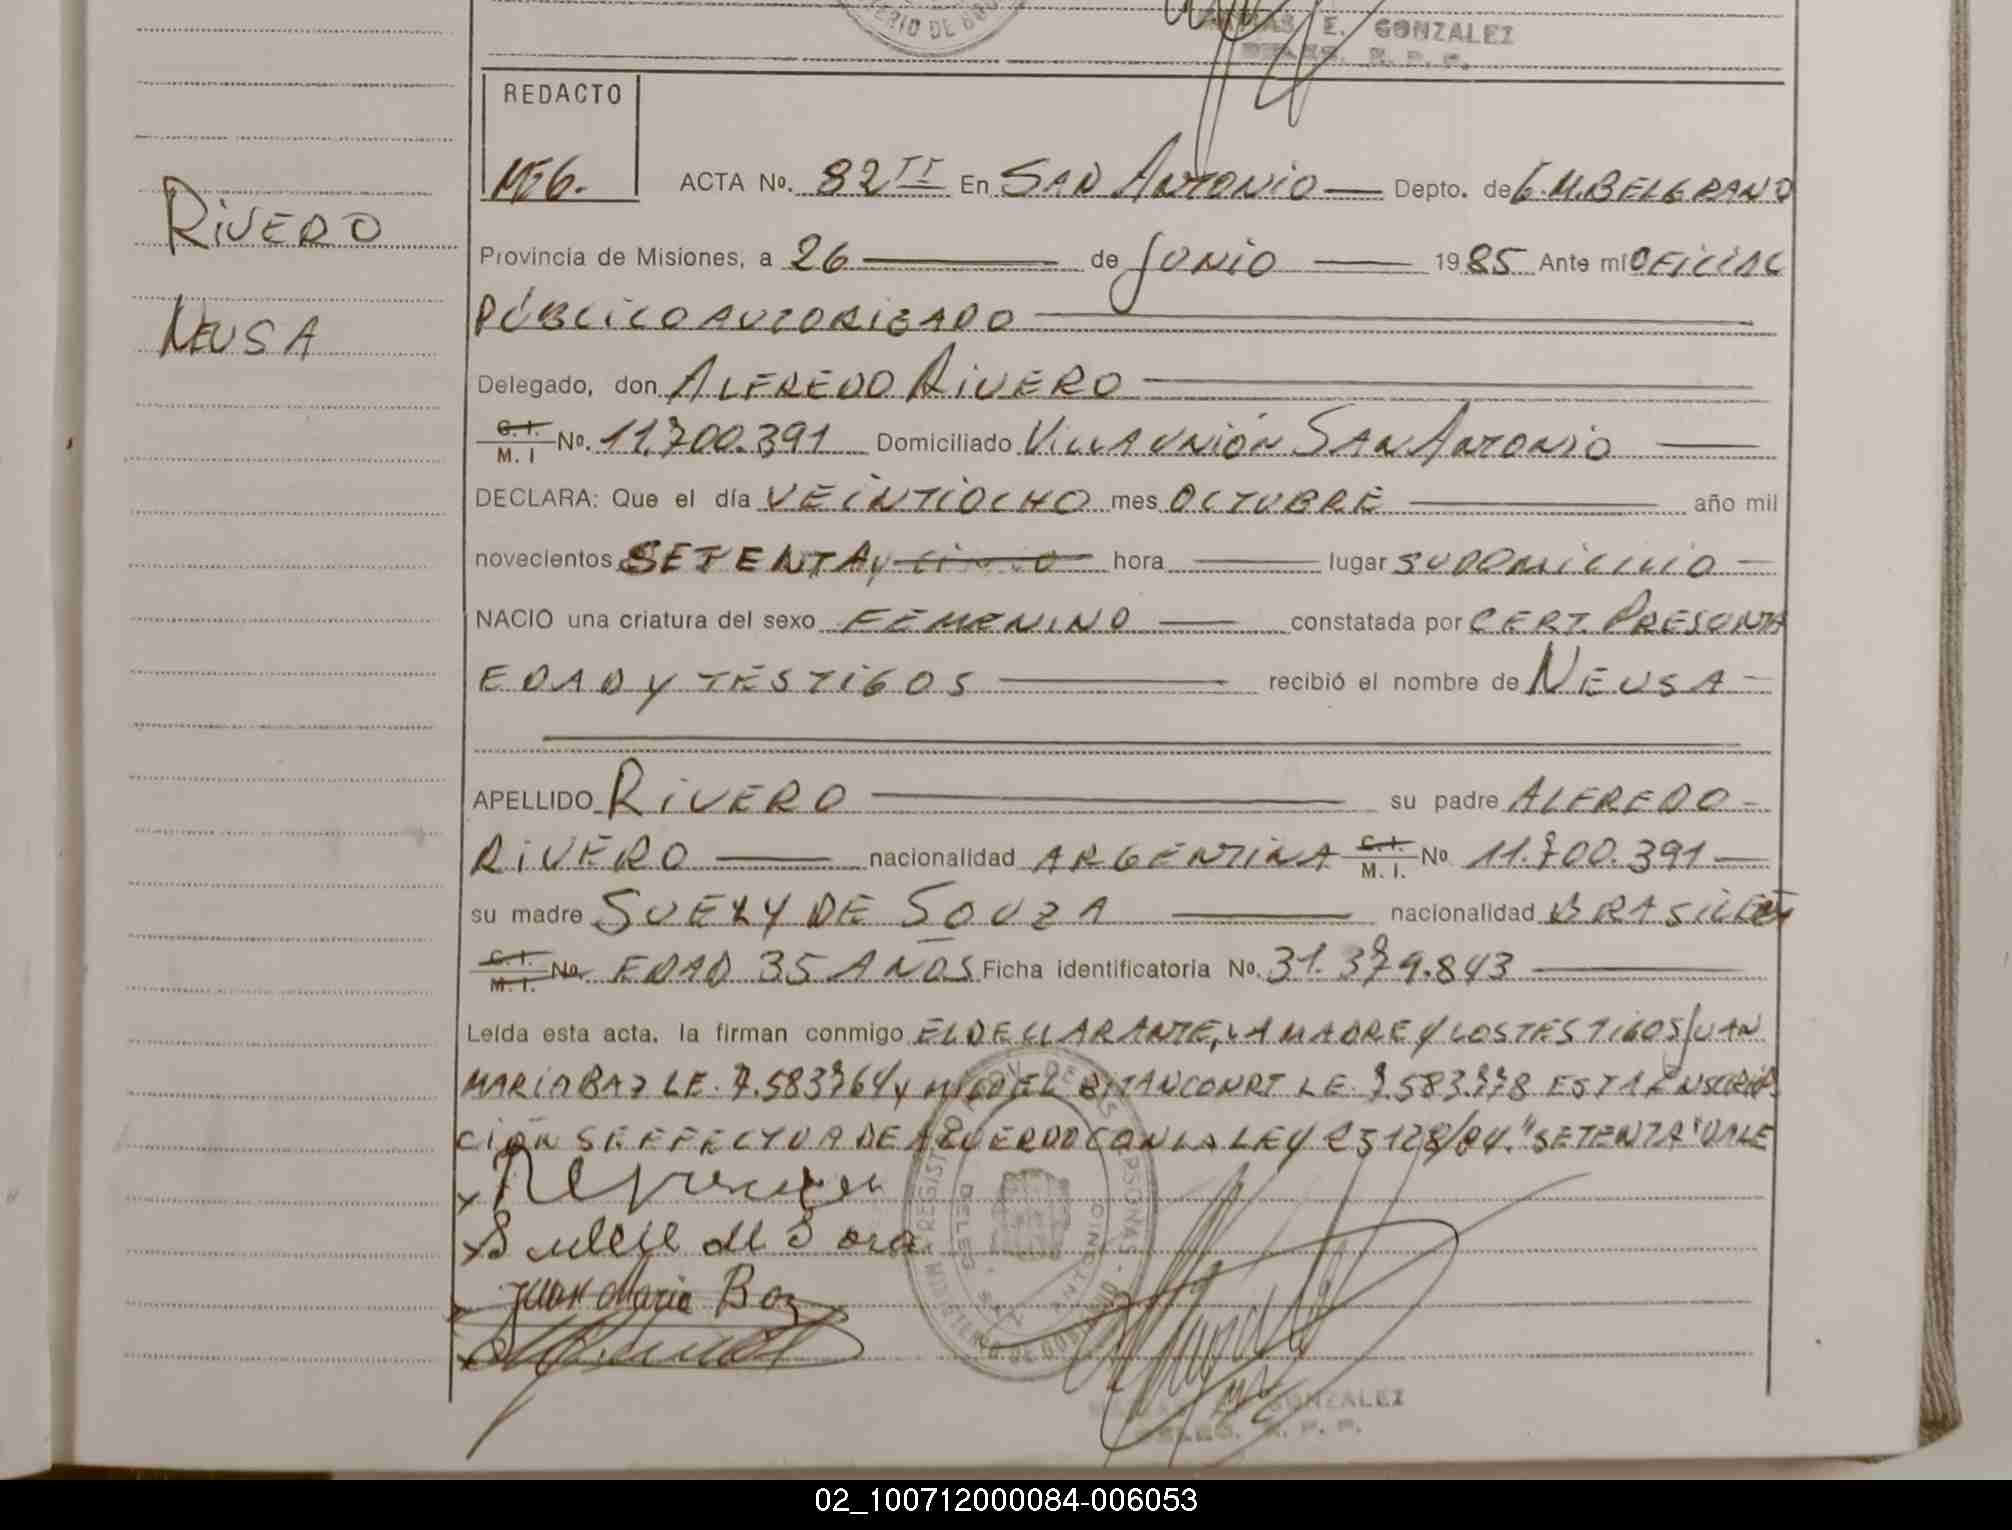 TERIO DE GOB
E. GONZALEZ
DELEG. R. P. P.
REDACTO
MEG.
ACTA No. 82 TT En SAN ANTONIO — Depto. de G.M. BELGRANO
RIVERO
Provincia de Misiones, a 26 — de JUNIO — 1985 Ante mí OFICIAL
PÚBLICO AUTORIZADO —
NEUSA
Delegado, don ALFREDO RIVERO —
C.I. M. I No. 11.700.391 Domiciliado VILLA UNIÓN SAN ANTONIO —
DECLARA: Que el día VEINTIOCHO mes OCTUBRE — año mil
novecientos SETENTA y hora — lugar SU DOMICILIO —
NACIO una criatura del sexo FEMENINO — constatada por CERT. PRESUNTA
EDAD Y TESTIGOS — recibió el nombre de NEUSA —
APELLIDO RIVERO — su padre ALFREDO —
RIVERO — nacionalidad ARGENTINA C.I. M. I. No 11.700.391 —
su madre SUELY DE SOUZA — nacionalidad BRASILEÑA
C.I. M. I. No. EDAD 35 AÑOS Ficha identificatoria No. 31.379.843 —
Leída esta acta, la firman conmigo EL DECLARANTE, LA MADRE Y LOS TESTIGOS JUAN
MARIA BAZ LE. 7.583764 y MIGUEL BITANCONRT LE. 7.583.778 ESTA INSCRIP
CIÓN SE EFFECTUA DE ACUERDO CON LA LEY 23128/84. "SETENTA" VALE
Juan Maria Boz
GONZALEZ
DELEG. R. P. P.
02_100712000084-006053